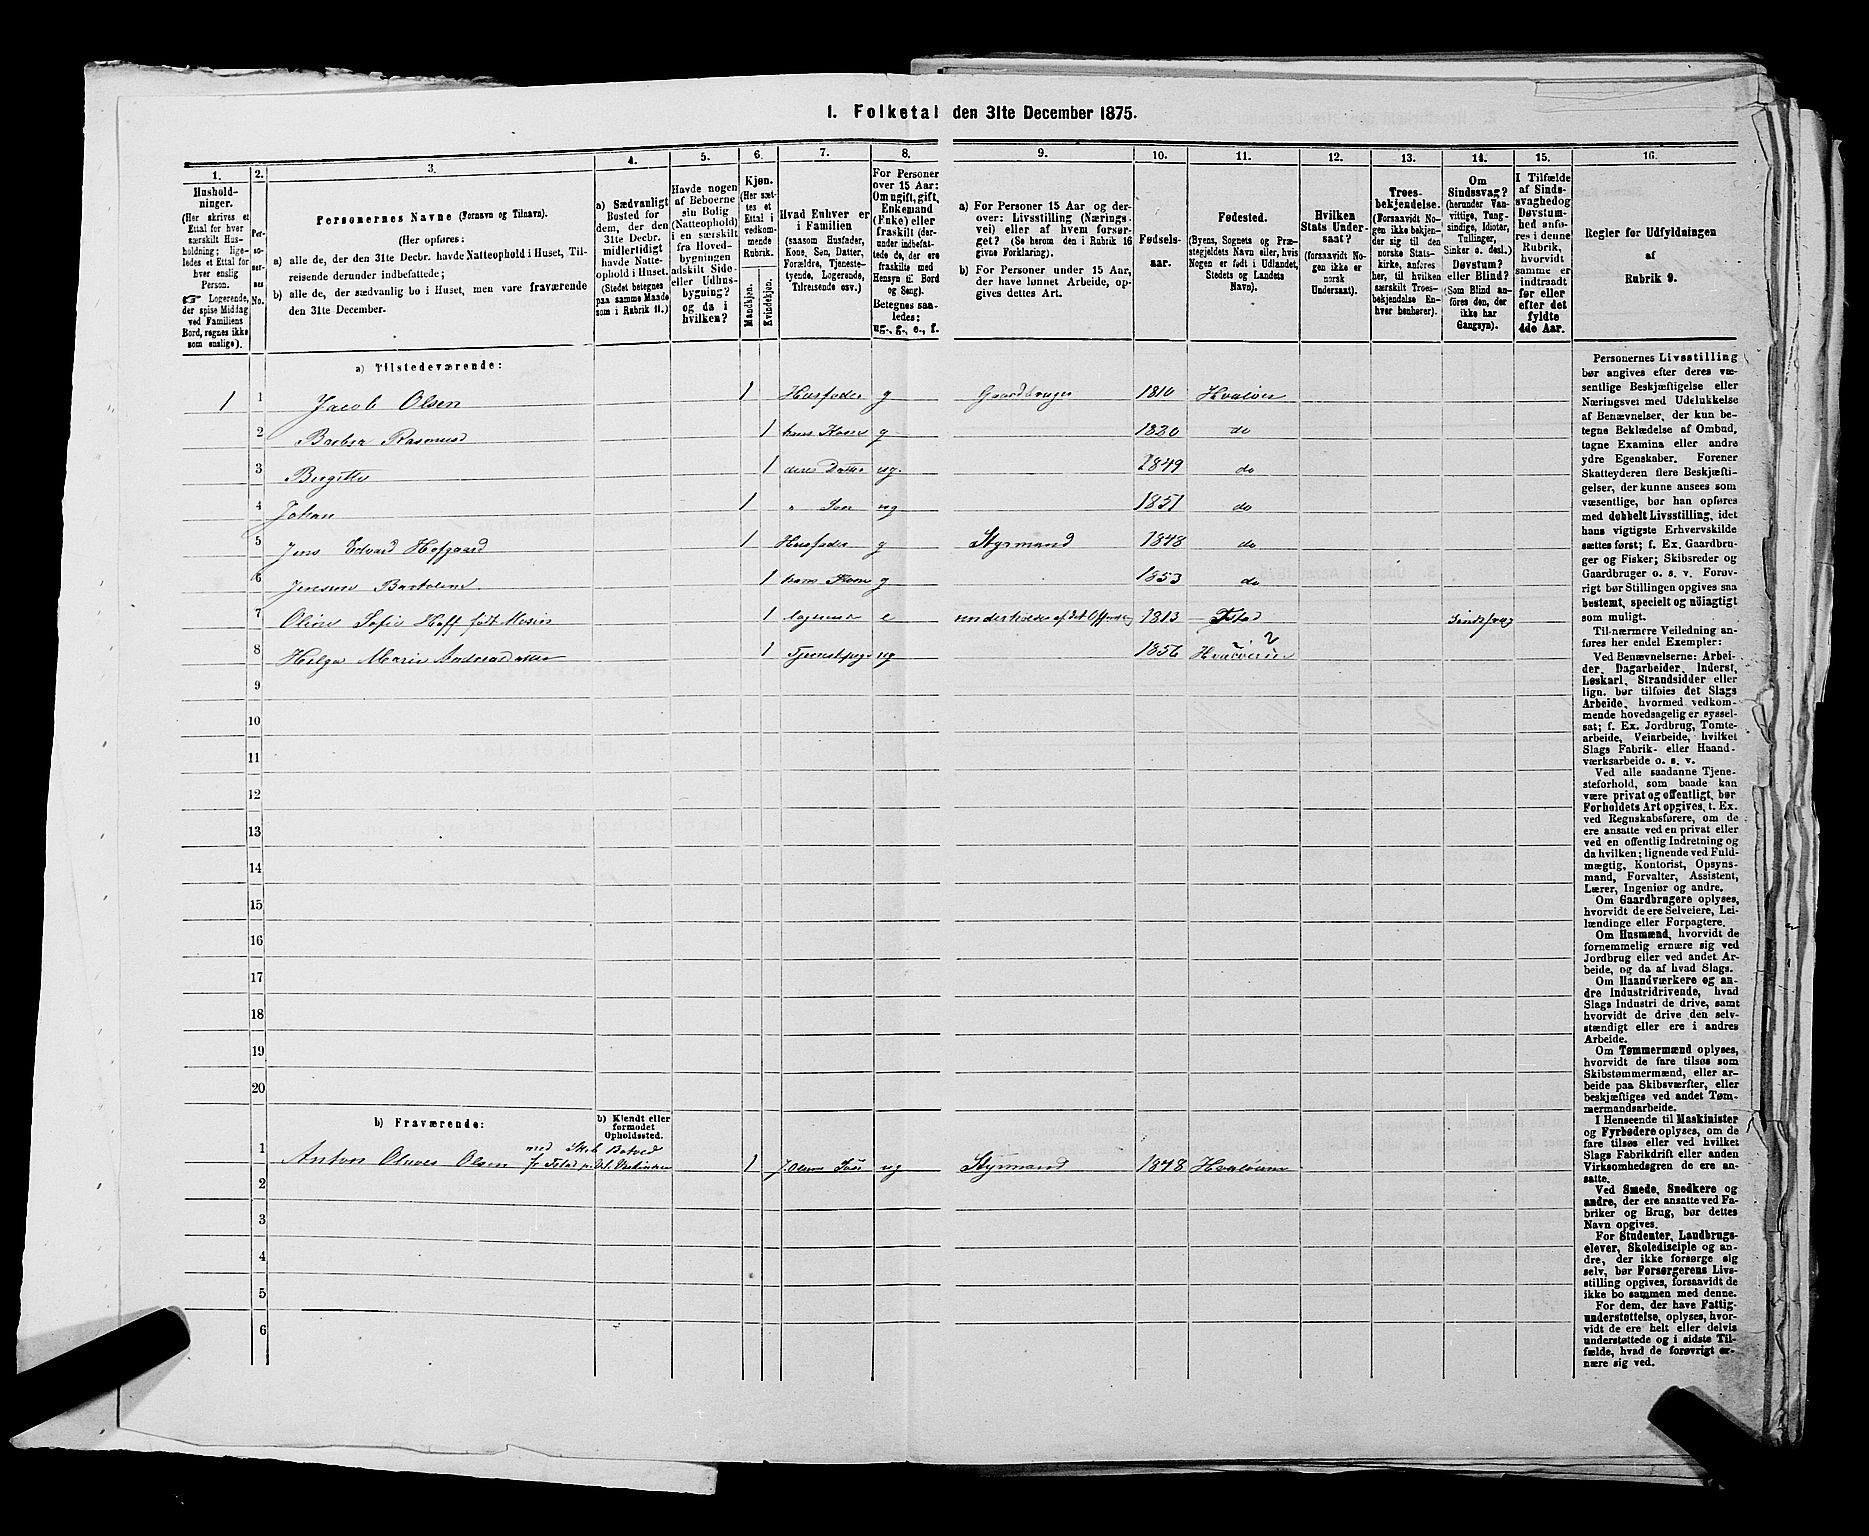 I. Folketal den 31te December 1875.
1. 2. 3. 4. 5. 6. 7. 8. 9. 10. 11. 12. 13. 14. 15. 16.
Hushold-
ninger.
(Her skrives et
Ettal for hver
særskilt Hus-
holdning; lige-
ledes et Ettal for
hver enslig
Person.
☞ Logerende,
der spise Middag
ved Familiens
Bord, regnes ikke
som enslige).
Per-
so-
ner-
nes
No.
Personernes Navne (Fornavn og Tilnavn).
(Her opføres:
a) alle de, der den 31te Decbr. havde Natteophold i Huset, Til-
reisende derunder indbefattede;
b) alle de, der sædvanlig bo i Huset, men vare fraværende
den 31te December.
a) Sædvanligt
Bosted for
dem, der den
31te Decbr.
midlertidigt
havde Natte-
ophold i Huset.
(Stedet betegnes
paa samme Maade
som i Rubrik 11.)
Havde nogen
af Beboerne
sin Bolig
(Natteophold)
i en særskilt
fra Hoved-
bygningen
adskilt Side-
eller Udhus-
bygning?
og da i
hvilken?
Kjøn.
(Her sæt-
tes et
Ettal i
vedkom-
mende
Rubrik.
Mandkjøn.
Kvindekjøn.
Hvad Enhver er
i Familien
(saasom Husfader,
Kone, Søn, Datter,
Forældre, Tjeneste-
tyende, Logerende,
Tilreisende osv.)
For Personer
over 15 Aar:
Om ugift, gift,
Enkemand
(Enke) eller
fraskilt (der-
under indbefat-
tede de, der ere
fraskilte med
Hensyn til Bord
og Seng).
Betegnes saa-
ledes:
ug., g., e., f.
a) For Personer 15 Aar og der-
over: Livsstilling (Nærings-
vei) eller af hvem forsør-
get? (Se herom den i Rubrik 16
givne Forklaring).
b) For Personer under 15 Aar,
der have lønnet Arbeide, op-
gives dettes Art.
Fødsels-
aar.
Fødested.
(Byens, Sognets og Præ-
stegjeldets Navn eller, hvis
Nogen er født i Udlandet,
Stedets og Landets
Navn).
Hvilken
Stats Under-
saat?
(forsaavidt No-
gen ikke er
norsk
Undersaat).
Troes-
bekjendelse.
(Forsaavidt No-
gen ikke bekjen-
der sig til den
norske Stats-
kirke, anføres
her, til hvilken
særskilt Troes-
bekjendelse En-
hver henhører).
Om
Sindssvag?
(herunder Van-
vittige, Tung-
sindige, Idioter,
Tullinger,
Sinker o. desl.)
Døvstum?
eller Blind?
(Som Blind an-
føres den, der
ikke har
Gangsyn).
I Tilfælde
af Sinds-
svaghed og
Døvstum-
hed anfø-
res i denne
Rubrik,
hvorvidt
samme er
indtraadt
før eller
efter det
fyldte
4de Aar.
Regler for Udfyldningen
af
Rubrik 9.
a) Tilstedeværende:
1 1 Jacob Olsen 1 Husfader g Gaardbruger 1810 Hvaløer
2 Barbra Rasmusd 1 hans Kone g 1820 do
3 Birgitte 1 deres Datter ug. 1849 do
4 Johan 1 " Søn ug 1851 do
5 Jens Edvard Hofgaard 1 Husfader g Styrmand 1848 do
6 Jensine Bartoline 1 hans Kone g 1853 do
7 Oline Sofie Hoff født 1 e underholdes af det Offentlig 1813 Fstad Sindssvag
8 Helga Marie Andreasdatter 1 Tjenestepige ug 1856
9
10
11
12
13
14
15
16
17
18
19
20
b) Fraværende:
b) Kjendt eller
formodet
Opholdssted.
med Skib
1 Anton Olsen fr Fstad 1 J. Olsens Søn ug Styrmand 1848
2
3
4
5
6
Personernes Livsstilling
bør angives efter deres væ-
sentlige Beskjæftigelse eller
Næringsvei med Udelukkelse
af Benævnelser, der kun be-
tegne Beklædelse af Ombud,
tagne Examina eller andre
ydre Egenskaber. Forener
Skatteyderen flere Beskjæfti-
gelser, der kunne ansees som
væsentlige, bør han opføres
med dobbelt Livsstilling, idet
hans vigtigste Erhvervskilde
sættes først; f. Ex. Gaardbru-
ger og Fisker; Skibsreder og
Gaardbruger o. s. v. Forøv-
rigt bør Stillingen opgives saa
bestemt, specielt og nøiagtigt
som muligt.
Til nærmere Veiledning an-
føres her endel Exempler:
Ved Benævnelserne: Arbei-
der, Dagarbeider, Inderst,
Løskarl, Strandsidder eller
lign. bør tilføies det Slags
Arbeide, hvormed vedkom-
mende hovedsagelig er syssel-
sat; f. Ex. Jordbrug, Tomte-
arbeide, Veiarbeide, hvilket
Slags Fabrik- eller Haand-
værksarbeide o. s. v.
Ved alle saadanne Tjene-
steforhold, som baade kan
være privat og offentligt, bør
Forholdets Art opgives, t. Ex.
ved Regnskabsførere, om de
ere ansatte ved en privat eller
ved en offentlig Indretning og
da hvilken; lignende ved Fuld-
mægtig, Kontorist, Opsyns-
mand, Forvalter, Assistent,
Lærer, Ingeniør og andre.
Om Gaardbrugere oplyses,
hvorvidt de ere Selveiere, Lei-
lændinge eller Forpagtere.
Om Husmænd, hvorvidt de
fornemmelig ernære sig ved
Jordbrug eller ved andet Ar-
beide, og da af hvad Slags.
Om Haandværkere og an-
dre Industridrivende, hvad
Slags Industri de drive, samt
hvorvidt de drive den selv-
stændigt eller ere i andres
Arbeide.
Om Tømmermænd oplyses,
hvorvidt de fare tilsøs som
Skibstømmermænd, eller ar-
beide paa Skibsværfter, eller
beskjæftiges ved andet Tøm-
mermandsarbeide.
I Henseende til Maskinister
og Fyrbødere oplyses, om de
fare tilsøs eller ved hvilket
Slags Fabrikdrift eller anden
Virksomhedsgren de ere an-
satte.
Ved Smede, Snedkere og
andre, der ere ansatte ved Fa-
briker og Brug, bør dettes
Navn opgives.
For Studenter, Landbrugs-
elever, Skoledisciple og an-
dre, der ikke forsørge sig
selv, bør Forsørgerens Livs-
stilling opgives, forsaavidt de
ikke bo sammen med denne.
For dem, der have Fattig-
understøttelse, oplyses, hvor-
vidt de ere helt eller delvis
understøttede og i sidste Til-
fælde, hvad de forøvrigt er-
nære sig ved.